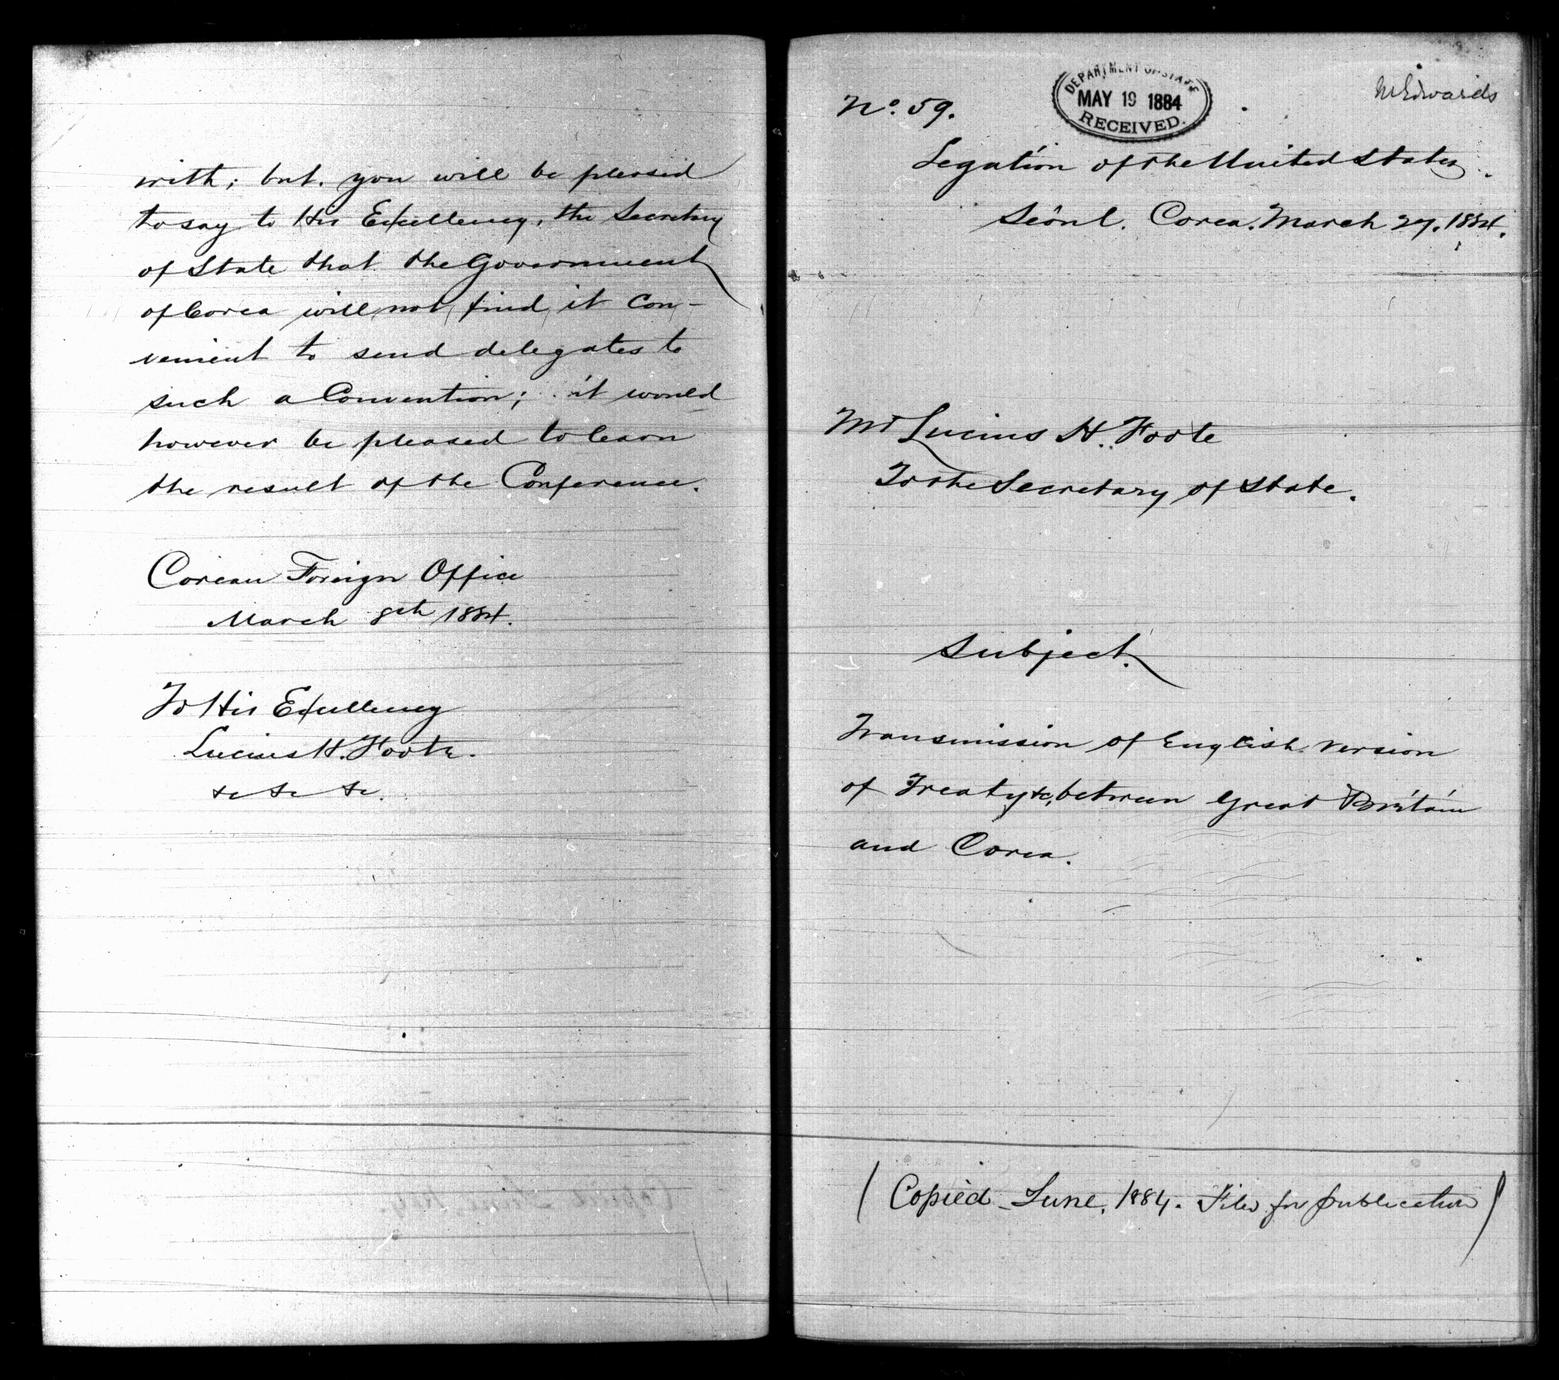 with; but you will be pleased
to say to His Excellency, the Secretary
of State that the Government
of Corea will not find it con-
venient to send delegates to
such a Convention; it would
however be pleased to learn
the result of the Conference.
Corean Foreign Office
March 8th 1884.
To His Excellency
Lucius H. Foote.
&c &c &c.
No. 59.
DEPARTMENT OF STATE
MAY 19 1884
RECEIVED.
McEdwards
Legation of the United States.
Seoul. Corea. March 27. 1884.
Mr Lucius H. Foote
To the Secretary of State.
Subject.
Transmission of English version
of Treaty &c, between Great Britain
and Corea.
(Copied June, 1884. Files for publication)